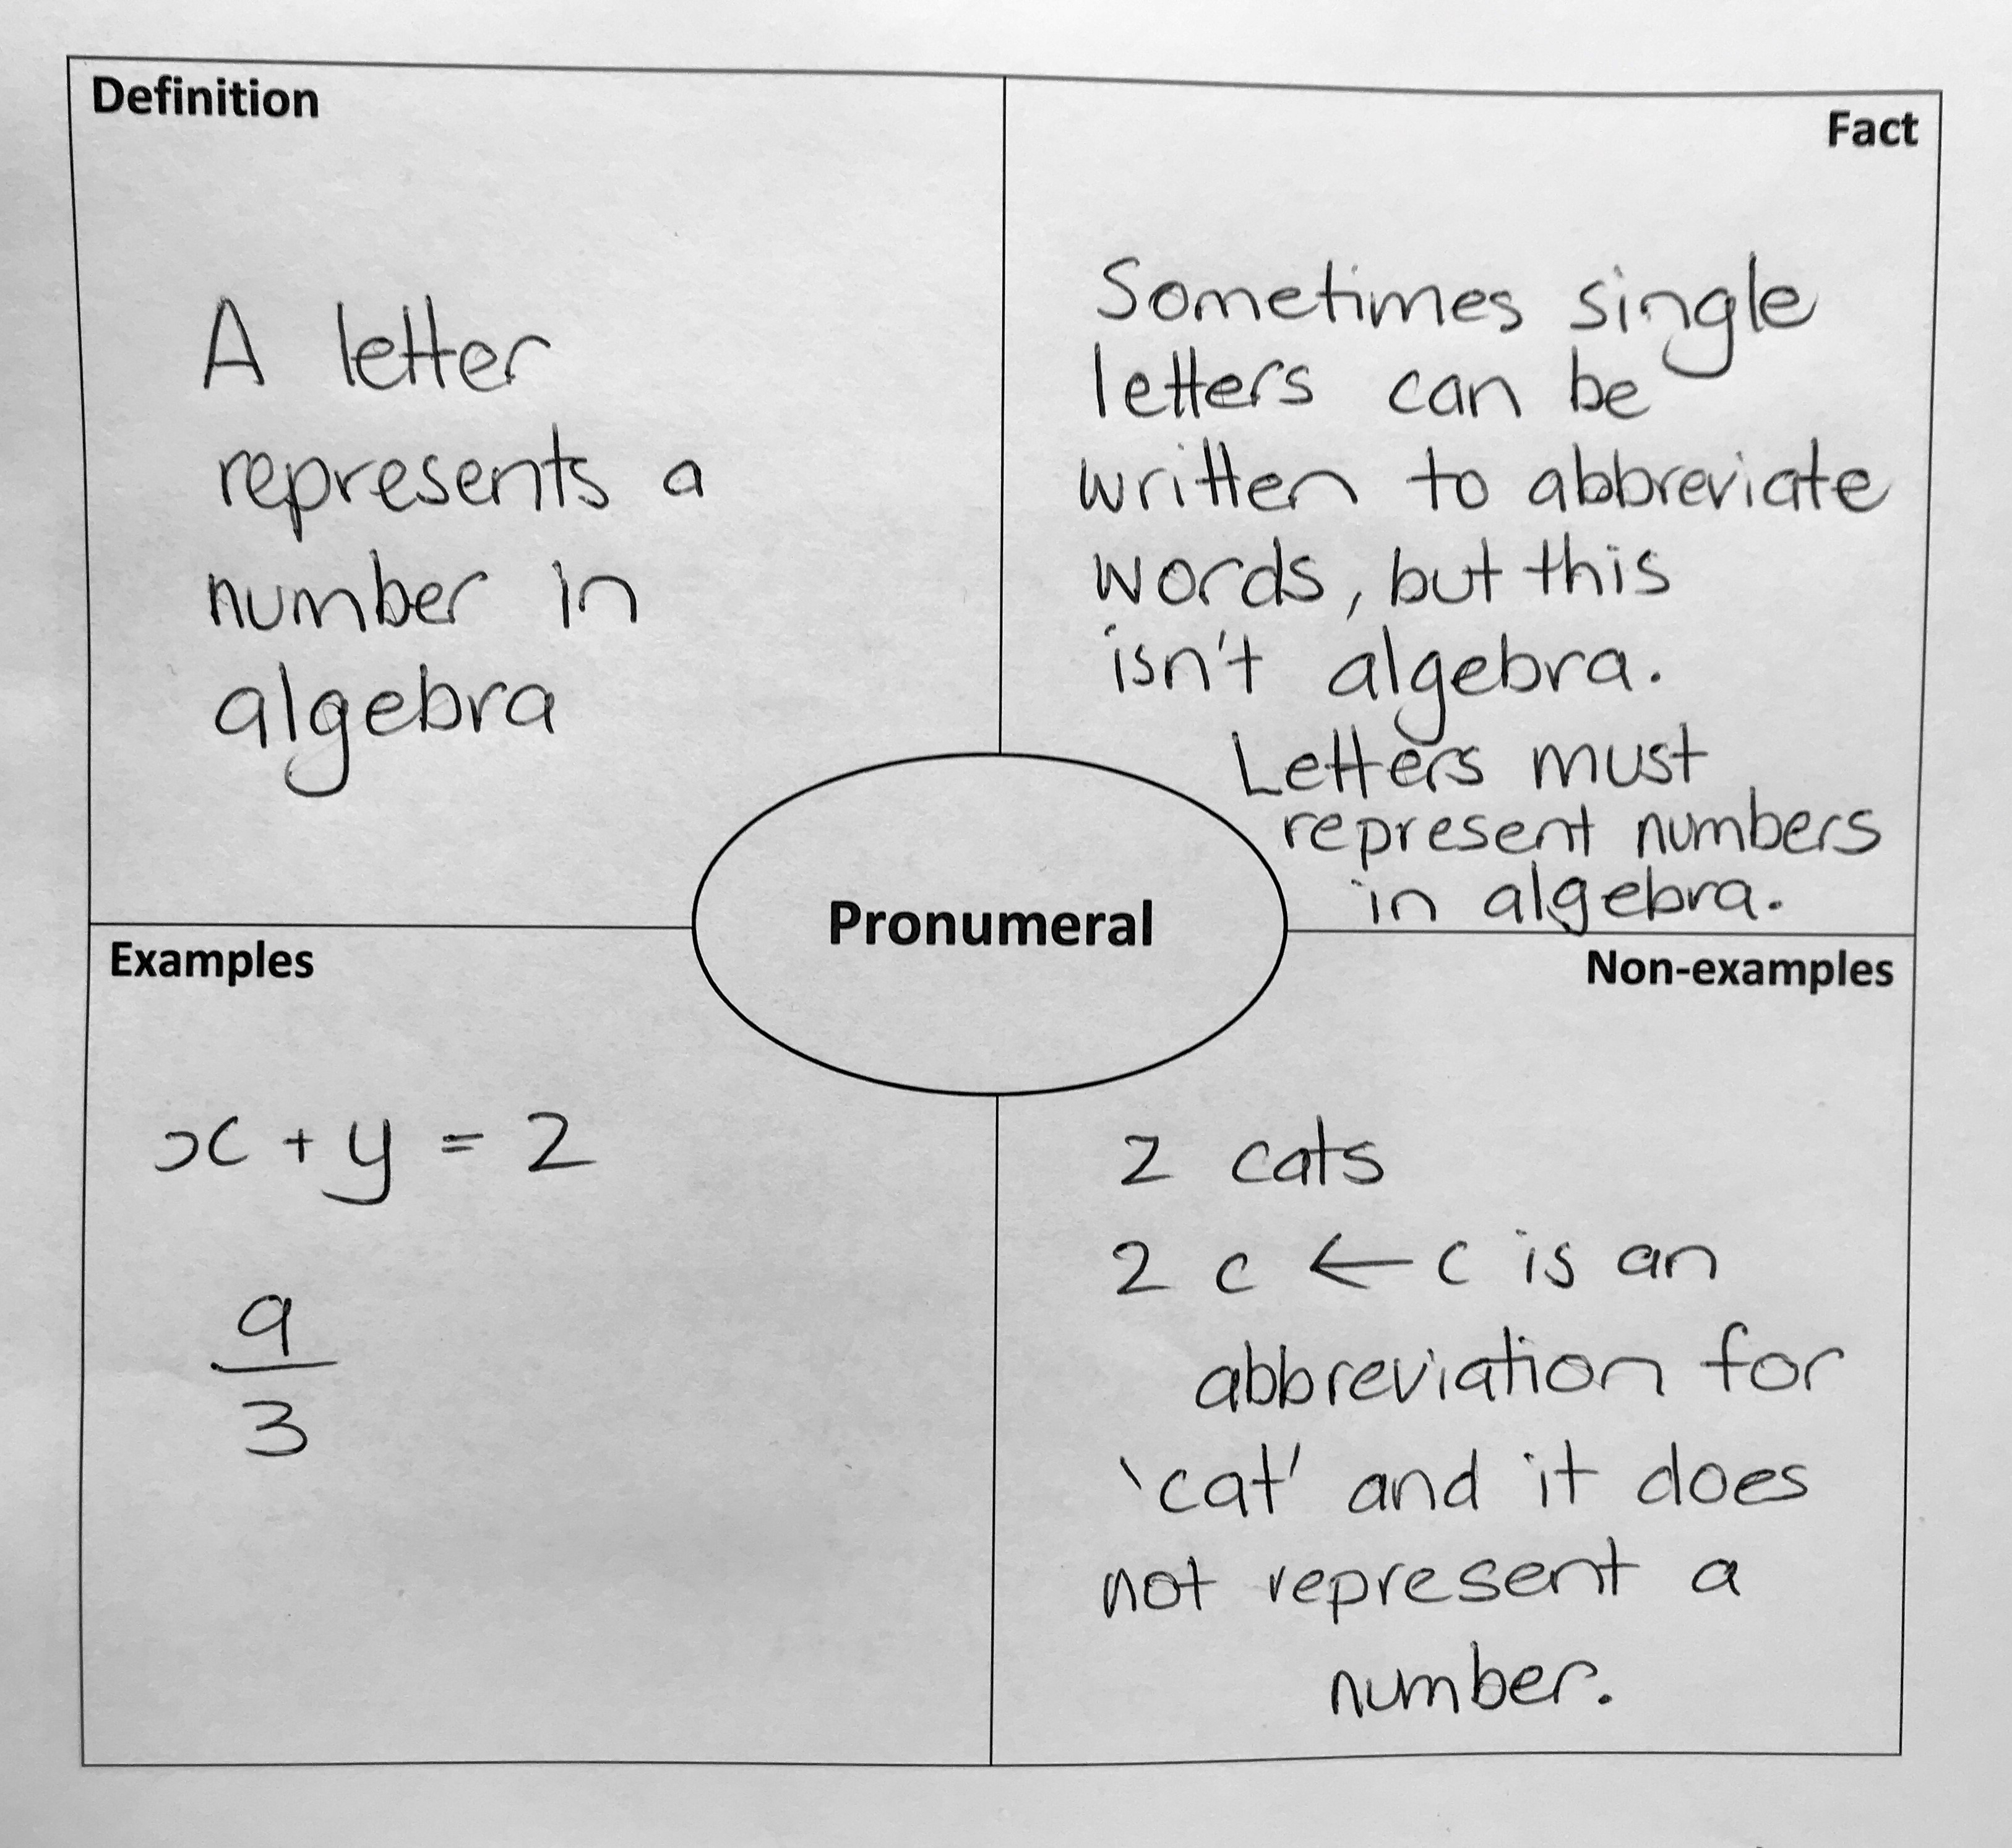 Definition
A letter
represents a
number in
algebra
Fact
Sometimes single
letters can be
written to abbreviate
words, but this
isn't algebra.
Letters must
represent numbers
in algebra.
Pronumeral
Examples
x + y = 2
a
3
Non-examples
2 cats
2 c ← c is an
abbreviation for
'cat' and it does
not represent a
number.